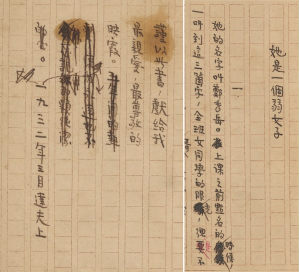 她是一個弱女子
一
她的名字叫鄭秀岳。上課之前點名的時候，
一叫到這三個字，全班女同學的眼光，總要不
謹以此書，獻給我
最親愛，最尊敬的
映霞。
一九三二年三月達夫上